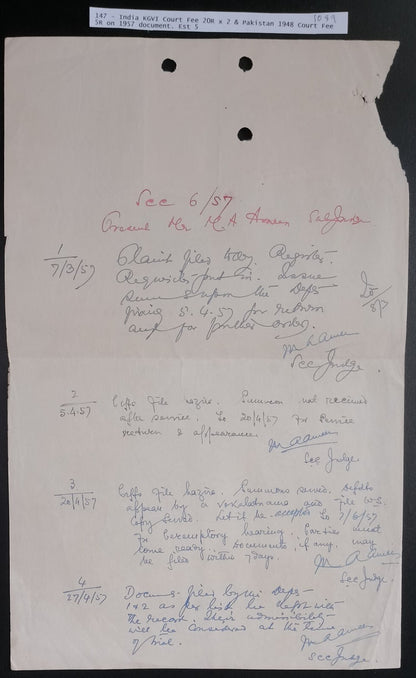 147 - India KGVI Court Fee 20R x 2 & Pakistan 1948 Court Fee
5R on 1957 document. Est 5
1089
Scc 6/57
Present Mr. M. A. Ameen SubJudge
1
7/3/57
Plaint filed today. Register.
Requisites put in. Issue
Summons upon the Defts
fixing 5.4.57 for return
and for further order.
M A Ameen
Scc Judge.
2
5.4.57
Plffs file hazira. Summons not received
after service. To 20/4/57 for service
return & appearance.
M A Ameen
Scc Judge.
3
20/4/57
Plffs file hazira. Summons served. Defdts
appear by a vokalatnama and file W.S.
Copy served. Let it be accepted To 7/6/57
for peremptory hearing. Parties must
come ready. Documents, if any, may
be filed within 7 days.
M A Ameen
Scc Judge.
4
27/4/57
Docums. filed by the Defts
1 & 2 as per list be kept with
the record. Their admissibility
will be considered at the time
of trial.
M A Ameen
Scc Judge.